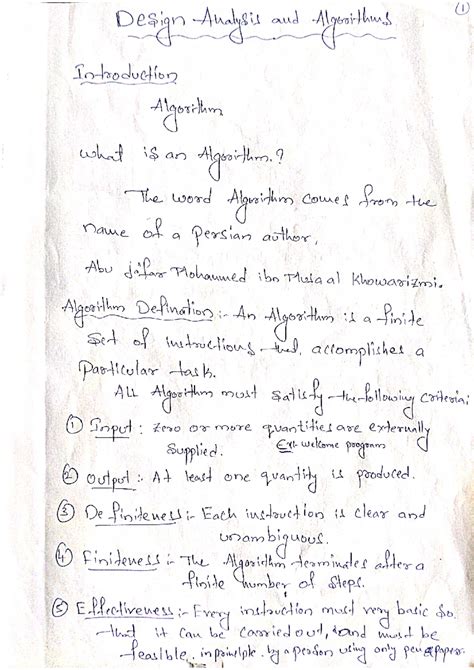 (1)
Design Analysis and Algorithms
Introduction
Algorithm
What is an Algorithm.?
The word Algorithm comes from the
name of a Persian author,
Abu Jafar Mohammed ibn Musa al Khowarizmi.
Algorithm Defination :- An Algorithm is a finite
Set of instructions that, accomplishes a
Particular task.
All Algorithm must Satisfy the following Criteria;
① Input : Zero or more quantities are externally
Supplied. Ex:- welcome program
② Output : At least one quantity is produced.
③ Definiteness :- Each instruction is clear and
unambiguous.
④ Finiteness :- The Algorithm terminates after a
finite number of Steps.
⑤ Effectiveness :- Every instruction must very basic So
that it can be carried out, and must be
feasible, in principle, by a person using only pen & paper.